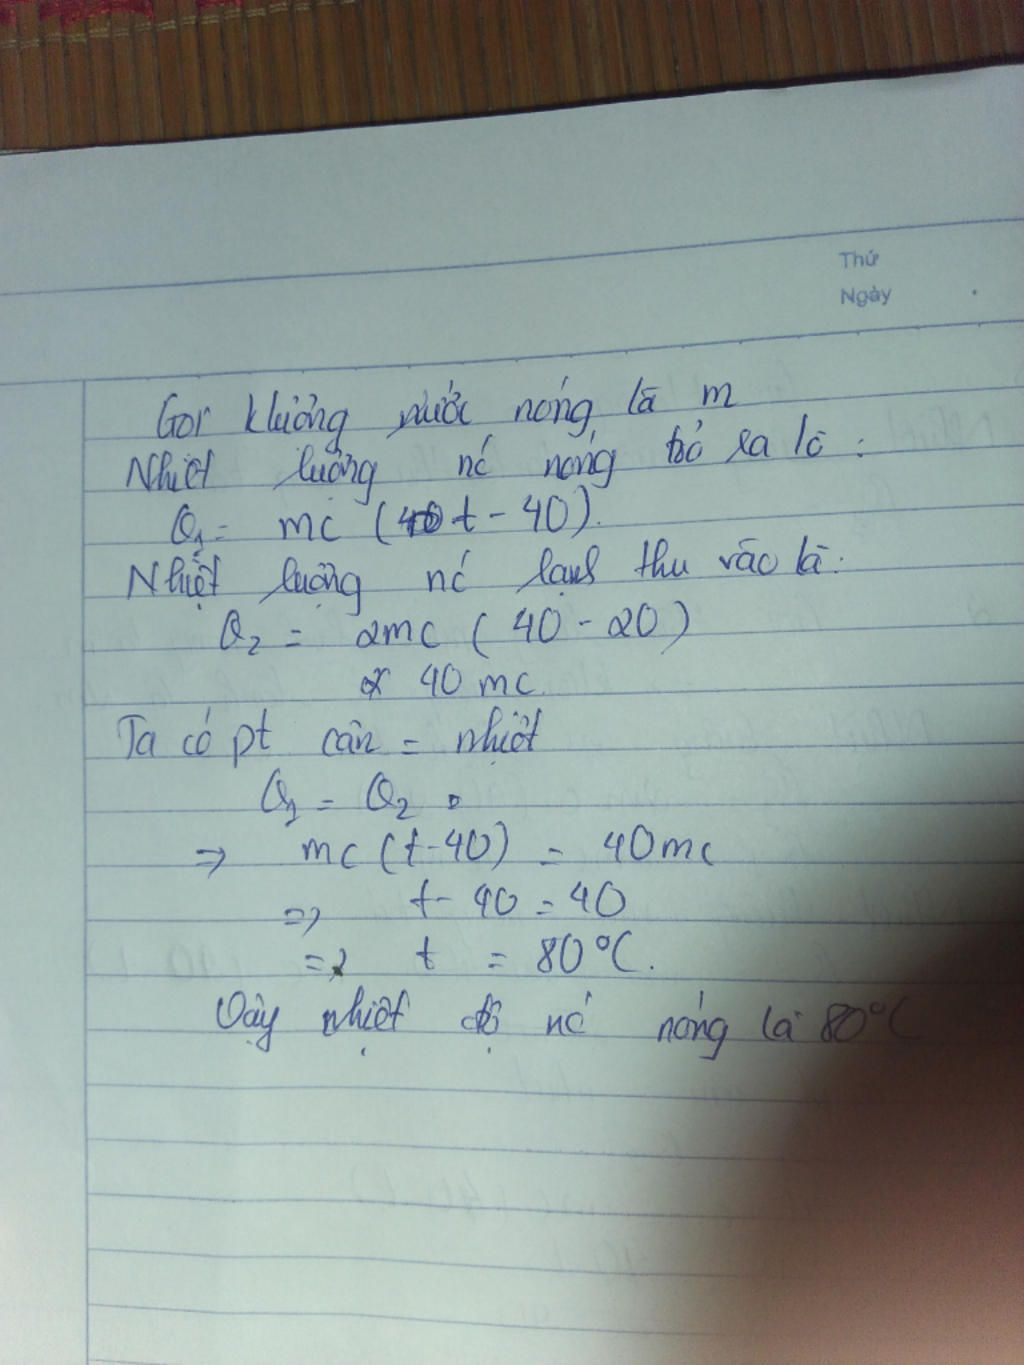 Thứ
Ngày
Gọi k lượng nước nóng là m
Nhiệt lượng nc nóng tỏ ra là :
Q₁ = mc (t - 40).
Nhiệt lượng nc lạnh thu vào là:
Q₂ = 2mc ( 40 - 20 )
= 40 mc.
Ta có pt cân = nhiệt
Q₁ = Q₂
=> mc (t-40) = 40mc
=> t - 40 = 40
=> t = 80°C.
Vậy nhiệt độ nc nóng là 80°C